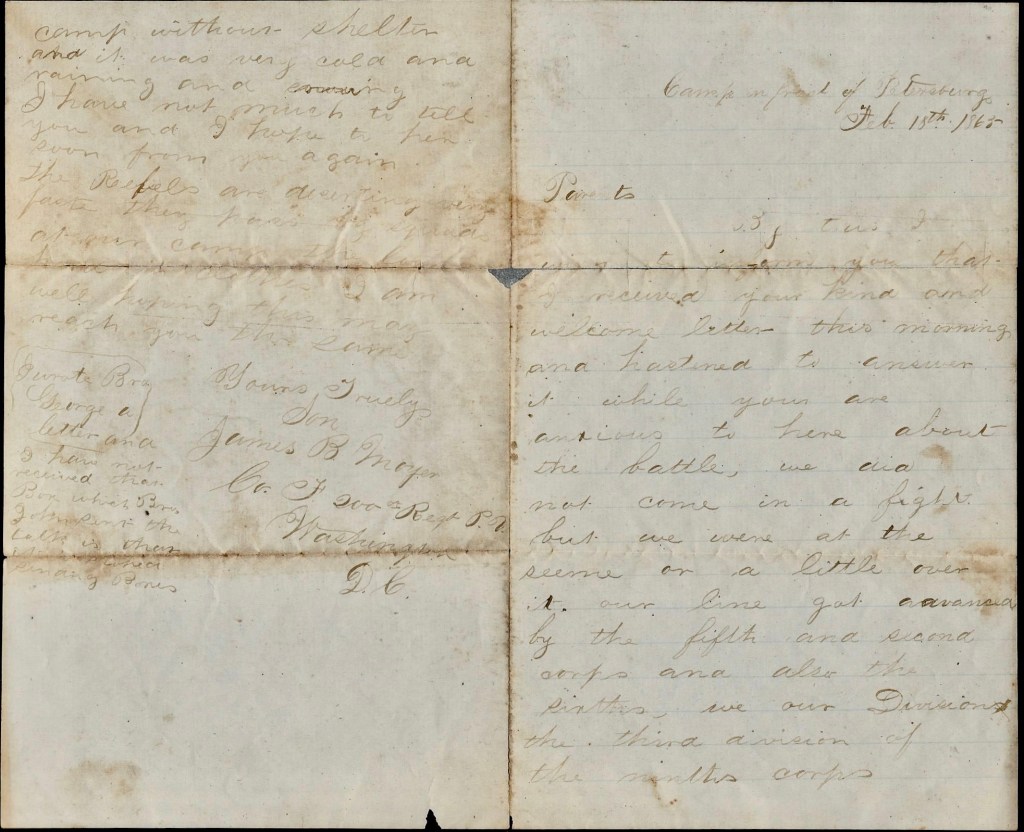 Camp in front of Petersburg
Feb 18th 1865
Parents
By this I
you that
I received your kind and
welcome letter this morning
and hastened to answer
it while you are
anxious to here about
the battle, we did
not come in a fight
but we were at the
seeme or a little over
it. our line got advanced
by the fifth and second
corps and also the
sixths, we our Division
the third division of
the ninths corps
camp without shelter
and it was very cold and
raining and
I have not much to tell
you and I hope to her
soon from you again.
the Rebels are deserting very
faste they pass by
at our camp
I am
well hoping this may
reach you the same
Yours Truely
Son
James B Moyer
Co. F 200th Regt P.V.
Washington
D.C.
I wrote Bro
George a
letter and
I have not
received that
Box which Bro
John sent the
talk is that
sending Boxes